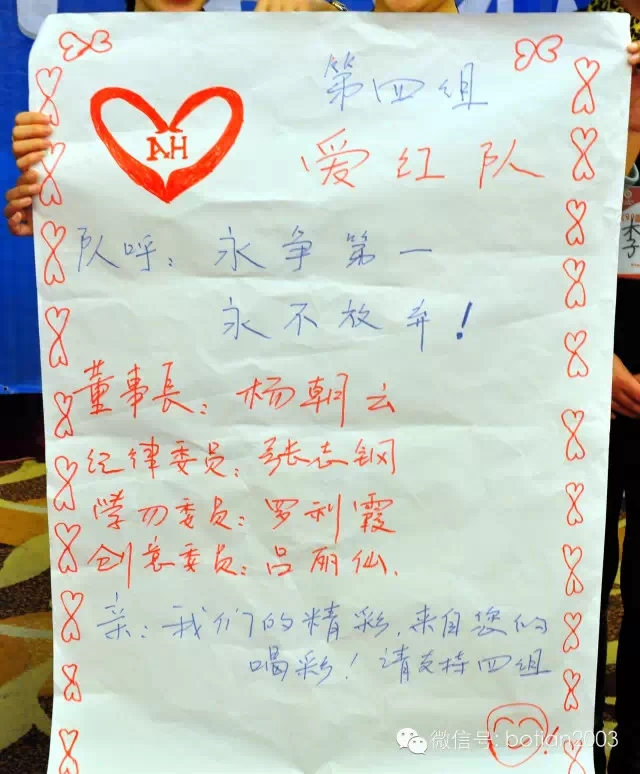 第四组
AH
爱红队
队呼：永争第一
永不放弃！
董事長：杨朝云
纪律委员：张志钢
学习委员：罗利霞
创意委员：吕丽仙.
亲：我们的精彩，来自您的
喝彩！请支持四组
李
微信号: botian2003